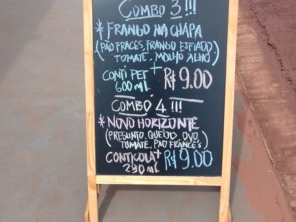 COMBO 3 !!!
* FRANGO NA CHAPA
(PÃO FRANCES, FRANGO DESFIADO
TOMATE, MOLHO ALHO)
CONTI PET + R$ 9.00
600 ml
COMBO 4 !!!
* NOVO HORIZONTE
(PRESUNTO, QUEIJO, OVO,
TOMATE, PÃO FRANCÊS)
CONTICOLA + R$ 9.00
290 ml